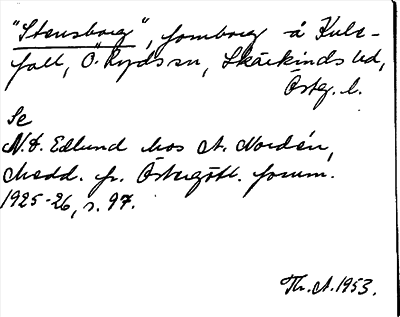 "Stensborg", fornborg å Kule-
fall, Ö. Ryds sn, Skärkinds hd,
Östg. l.
Se
N. F. Edlund hos A. Nordén,
Medd. fr. Östergötl. fornm.
1925-26, s. 97.
Th. A. 1953.